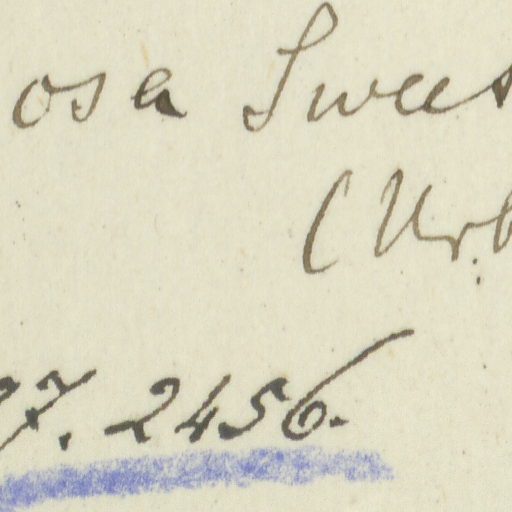 osa Swees
(Urb
27. 2456.